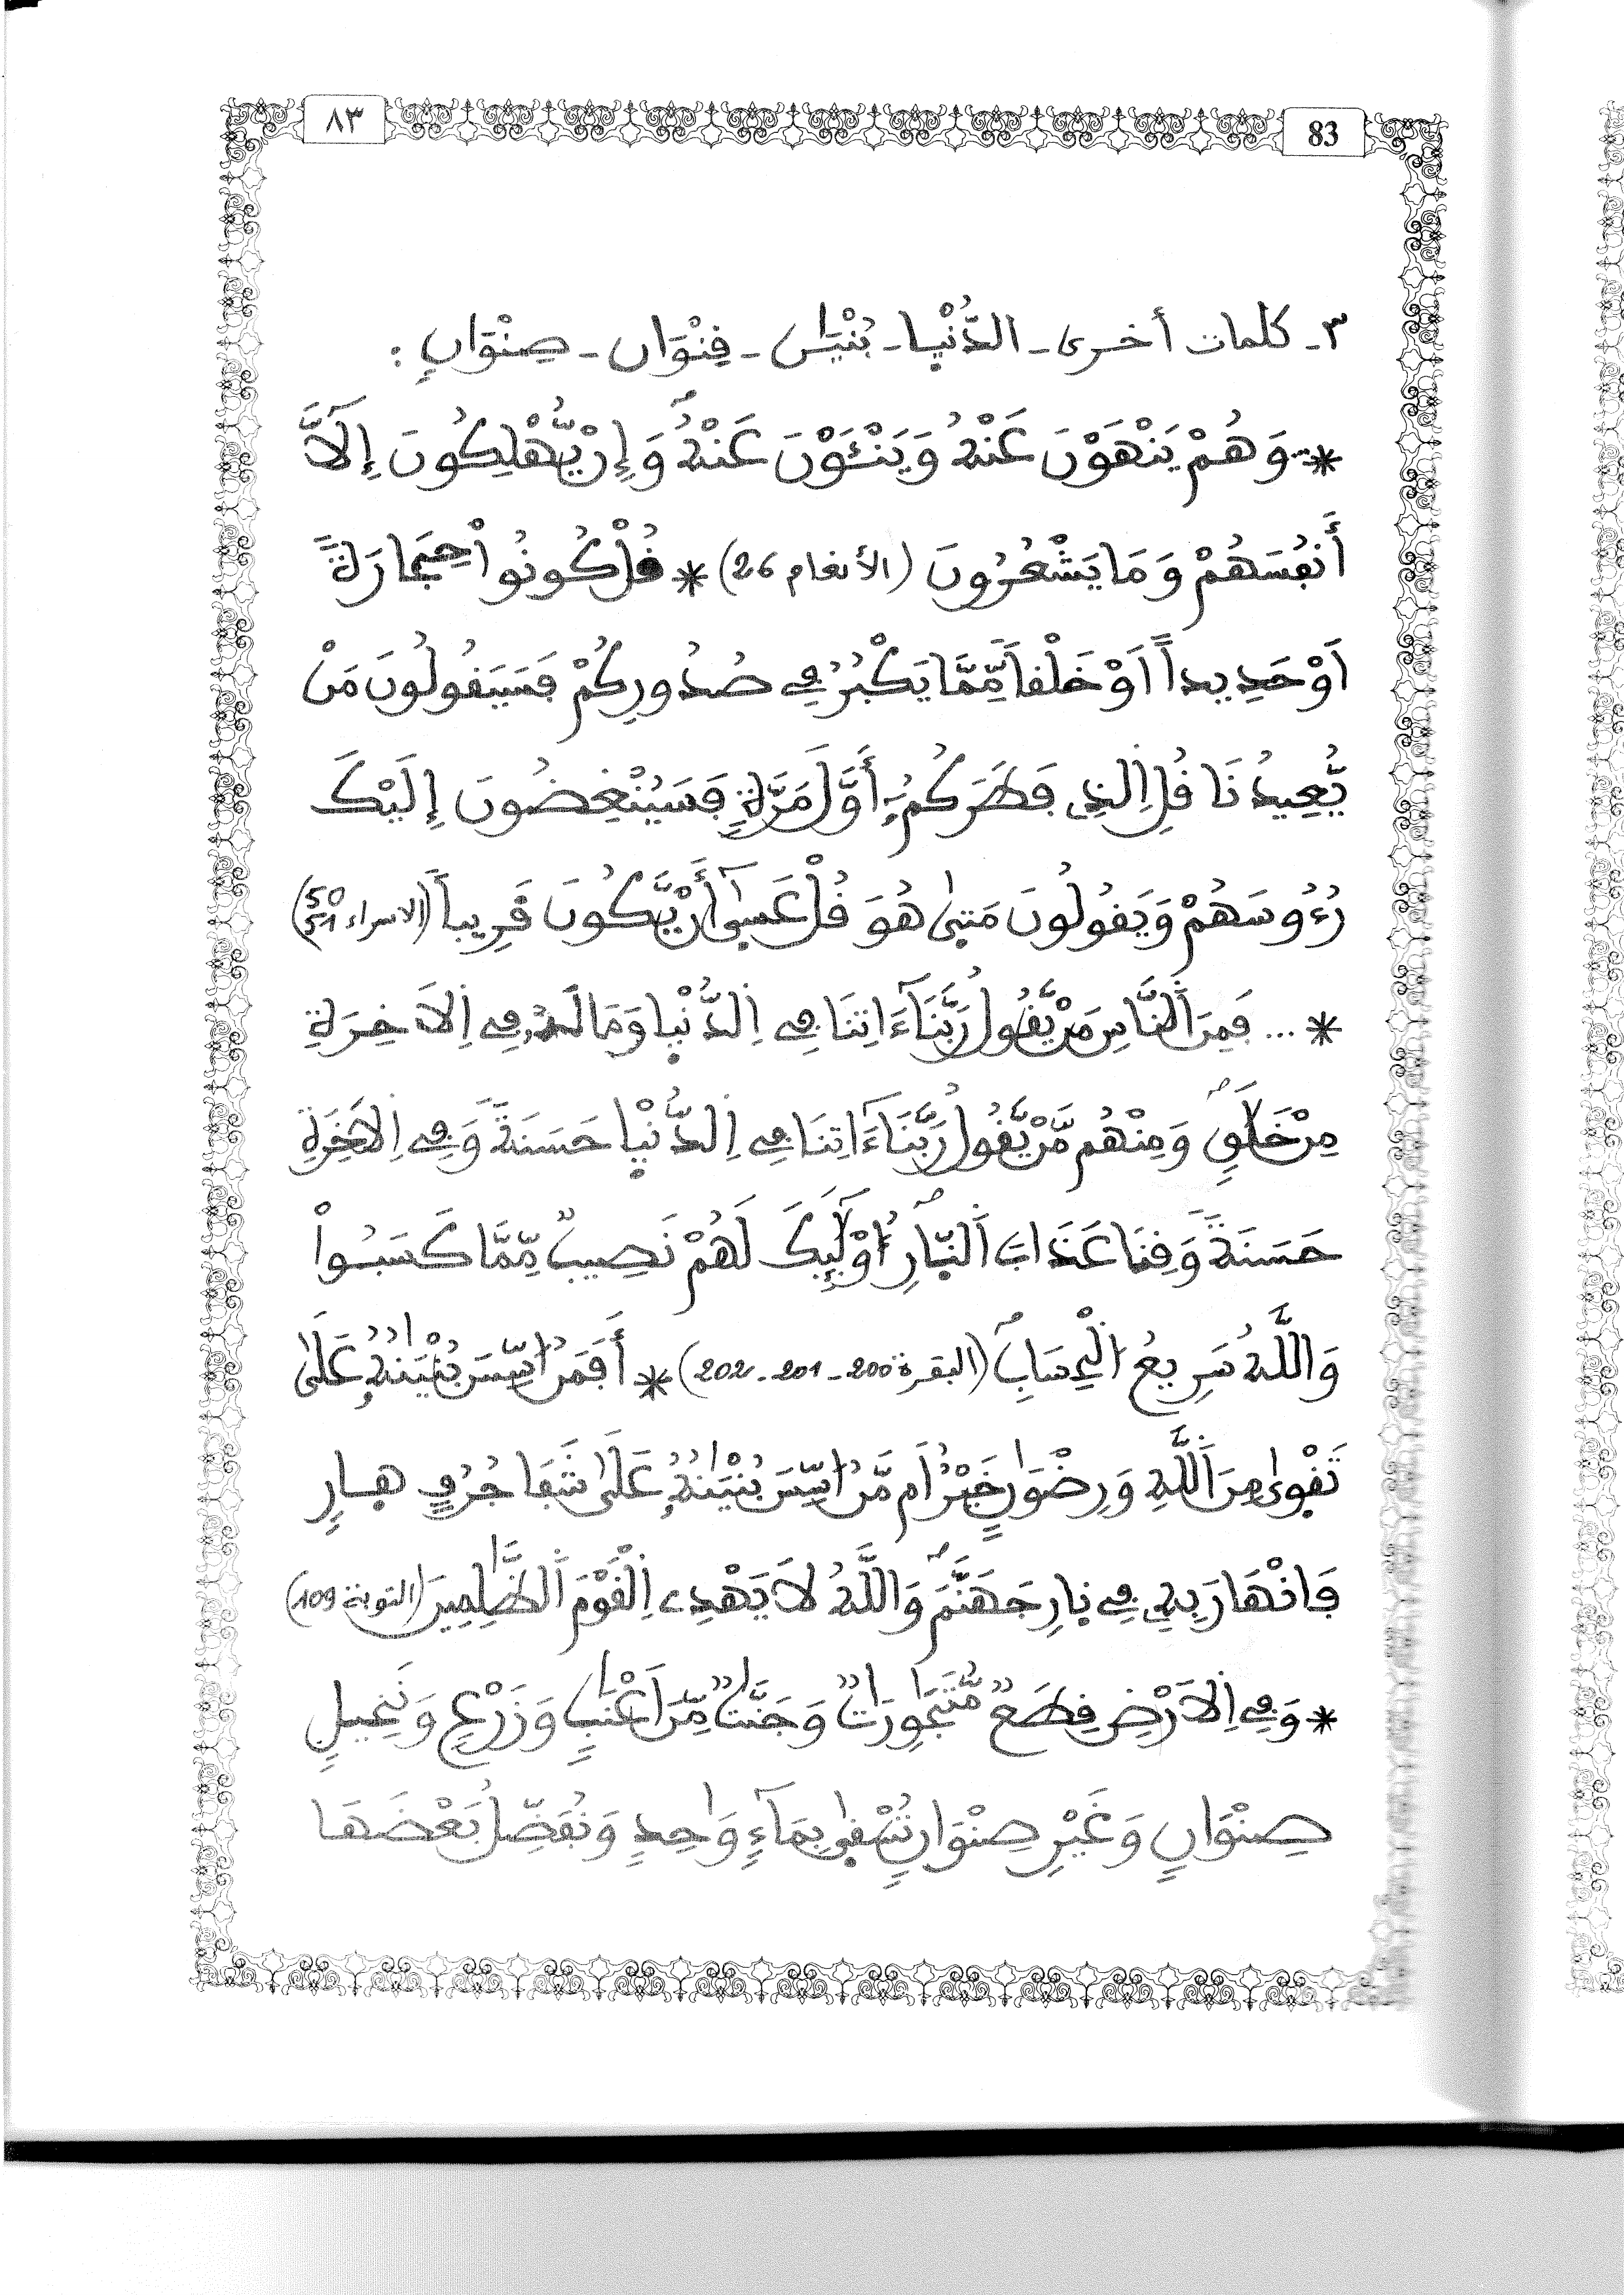 ٨٣
83
٣- كلمات أخرى - الدُّنْيا - بُنْيَٰن - قِنْوَان - صِنْوَانٍ :
* ... وَهُمْ يَنْهَوْنَ عَنْهُ وَيَنْـَٔوْنَ عَنْهُ وَإِنْ يُّهْلِكُونَ إِلَّآ
أَنفُسَهُمْ وَمَا يَشْعُرُونَ (الأنعام 26) * قُلْ كُونُواْ حِجَارَةً
اَوْ حَدِيداً اَوْ خَلْقاً مِّمَّا يَكْبُرُ فِى صُدُورِكُمْ فَسَيَقُولُونَ مَنْ
يُّعِيدُنَا قُلِ اِلذِى فَطَرَكُمُۥٓ أَوَّلَ مَرَّةٍ فَسَيُنْغِضُونَ إِلَيْكَ
رُءُوسَهُمْ وَيَقُولُونَ مَتىٰ هُوَ قُلْ عَسىٰٓ أَنْ يَّكُونَ قَرِيباً (الاسراء 50 51)
* ... فَمِنَ اَلنَّاسِ مَنْ يَّقُولُ رَبَّنَآ ءَاتِنَا فِى اِلدُّنْيا وَمَا لَهُۥ فِى اِلاَخِرَةِ
مِنْ خَلَٰقٍ وَمِنْهُم مَّنْ يَّقُولُ رَبَّنَآ ءَاتِنَا فِى اِلدُّنْيا حَسَنَةً وَفِى اِلاَخِرَةِ
حَسَنَةً وَقِنَا عَذَابَ اَلنّارِ أُوْلَٰٓئِكَ لَهُمْ نَصِيبٌ مِّمَّا كَسَبُواْ
وَاللَّهُ سَرِيعُ اُلْحِسَابِ (البقرة 200 - 201 - 202) * أَفَمَنُ اسِّسَ بُنْيَٰنُهُۥ عَلَىٰ
تَقْوىٰ مِنَ اَللَّهِ وَرِضْوَٰنٍ خَيْرٌ اَم مَّنُ اسِّسَ بُنْيَٰنُهُۥ عَلَىٰ شَفَا جُرُفٍ هارٍ
فَانْهَارَ بِهِۦ فِى نارِ جَهَنَّمَ وَاللَّهُ لاَ يَهْدِى اِلْقَوْمَ اَلظَّٰلِمِينَ (التوبة 109)
* وَفِى اِلاَرْضِ قِطَعٌ مُّتَجَٰوِرَٰتٌ وَجَنَّٰتٌ مِّنَ اَعْنَٰبٍ وَزَرْعٍ وَنَخِيلٍ
صِنْوَانٍ وَغَيْرِ صِنْوَانٍ تُسْقىٰ بِمَآءٍ وَٰحِدٍ وَنُفَضِّلُ بَعْضَهَا